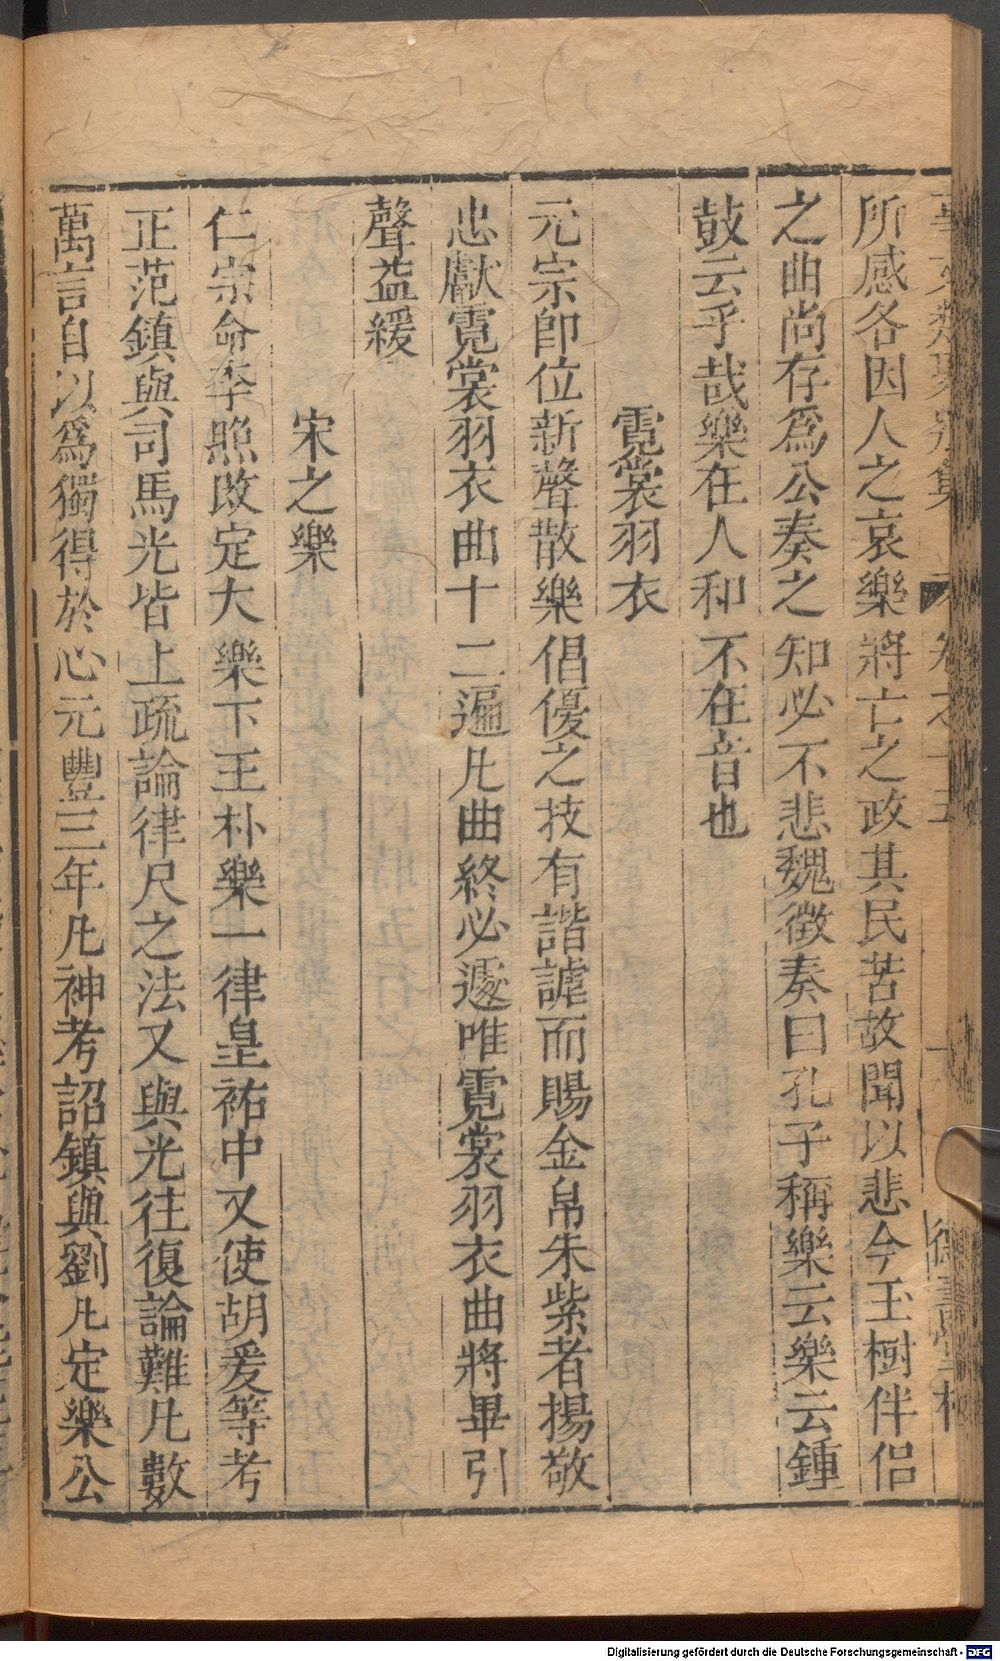 所感各因人之哀樂將亡之政其民苦故聞以悲今玉樹伴侶
之曲尚存爲公奏之知必不悲魏徵奏曰孔子稱樂云樂云鍾
鼓云乎哉樂在人和不在音也
霓裳羽衣
元宗卽位新聲散樂倡優之技有諧謔而賜金帛朱紫者揚敬
忠獻霓裳羽衣曲十二遍凡曲終必遽唯霓裳羽衣曲將畢引
聲益緩
宋之樂
仁宗命李照改定大樂下王朴樂一律皇祐中又使胡爰等考
正范鎮與司馬光皆上疏論律尺之法又與光往復論難凡數
萬言自以爲獨得於心元豐三年凡神考詔鎮與劉凡定樂公
Digitalisierung gefördert durch die Deutsche Forschungsgemeinschaft - DFG